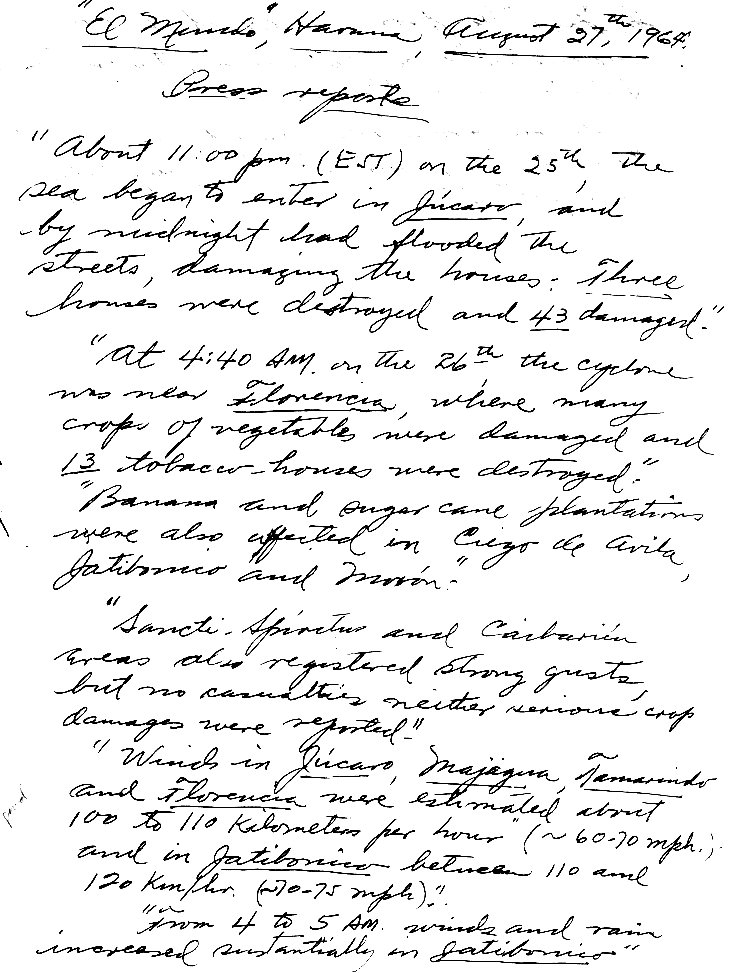 "El Mundo", Havana, August 27th, 1964.
Press reports
"About 11:00 pm. (EST.) on the 25th, the
sea began to enter in Júcaro, and
by midnight had flooded the
streets, damaging the houses. Three
houses were destroyed and 43 damaged."
"At 4:40 AM. on the 26th the cyclone
was near Florencia, where many
crops of vegetables were damaged and
13 tobacco-houses were destroyed."
"Banana and sugar cane plantations
were also affected in Ciego de Avila,
Jatibonico and Morón."
"Sancti-Spíritus and Caibarién
areas also registered strong gusts,
but no casualties neither serious crop
damages were reported."
"Winds in Júcaro, Majagua, Tamarindo
and Florencia were estimated about
100 to 110 Kilometers per hour" (~60-70 mph.),
and in Jatibonico between 110 and
120 Km/hr. (~70-75 mph)."
"From 4 to 5 AM. winds and rain
increased sustantially in Jatibonico"